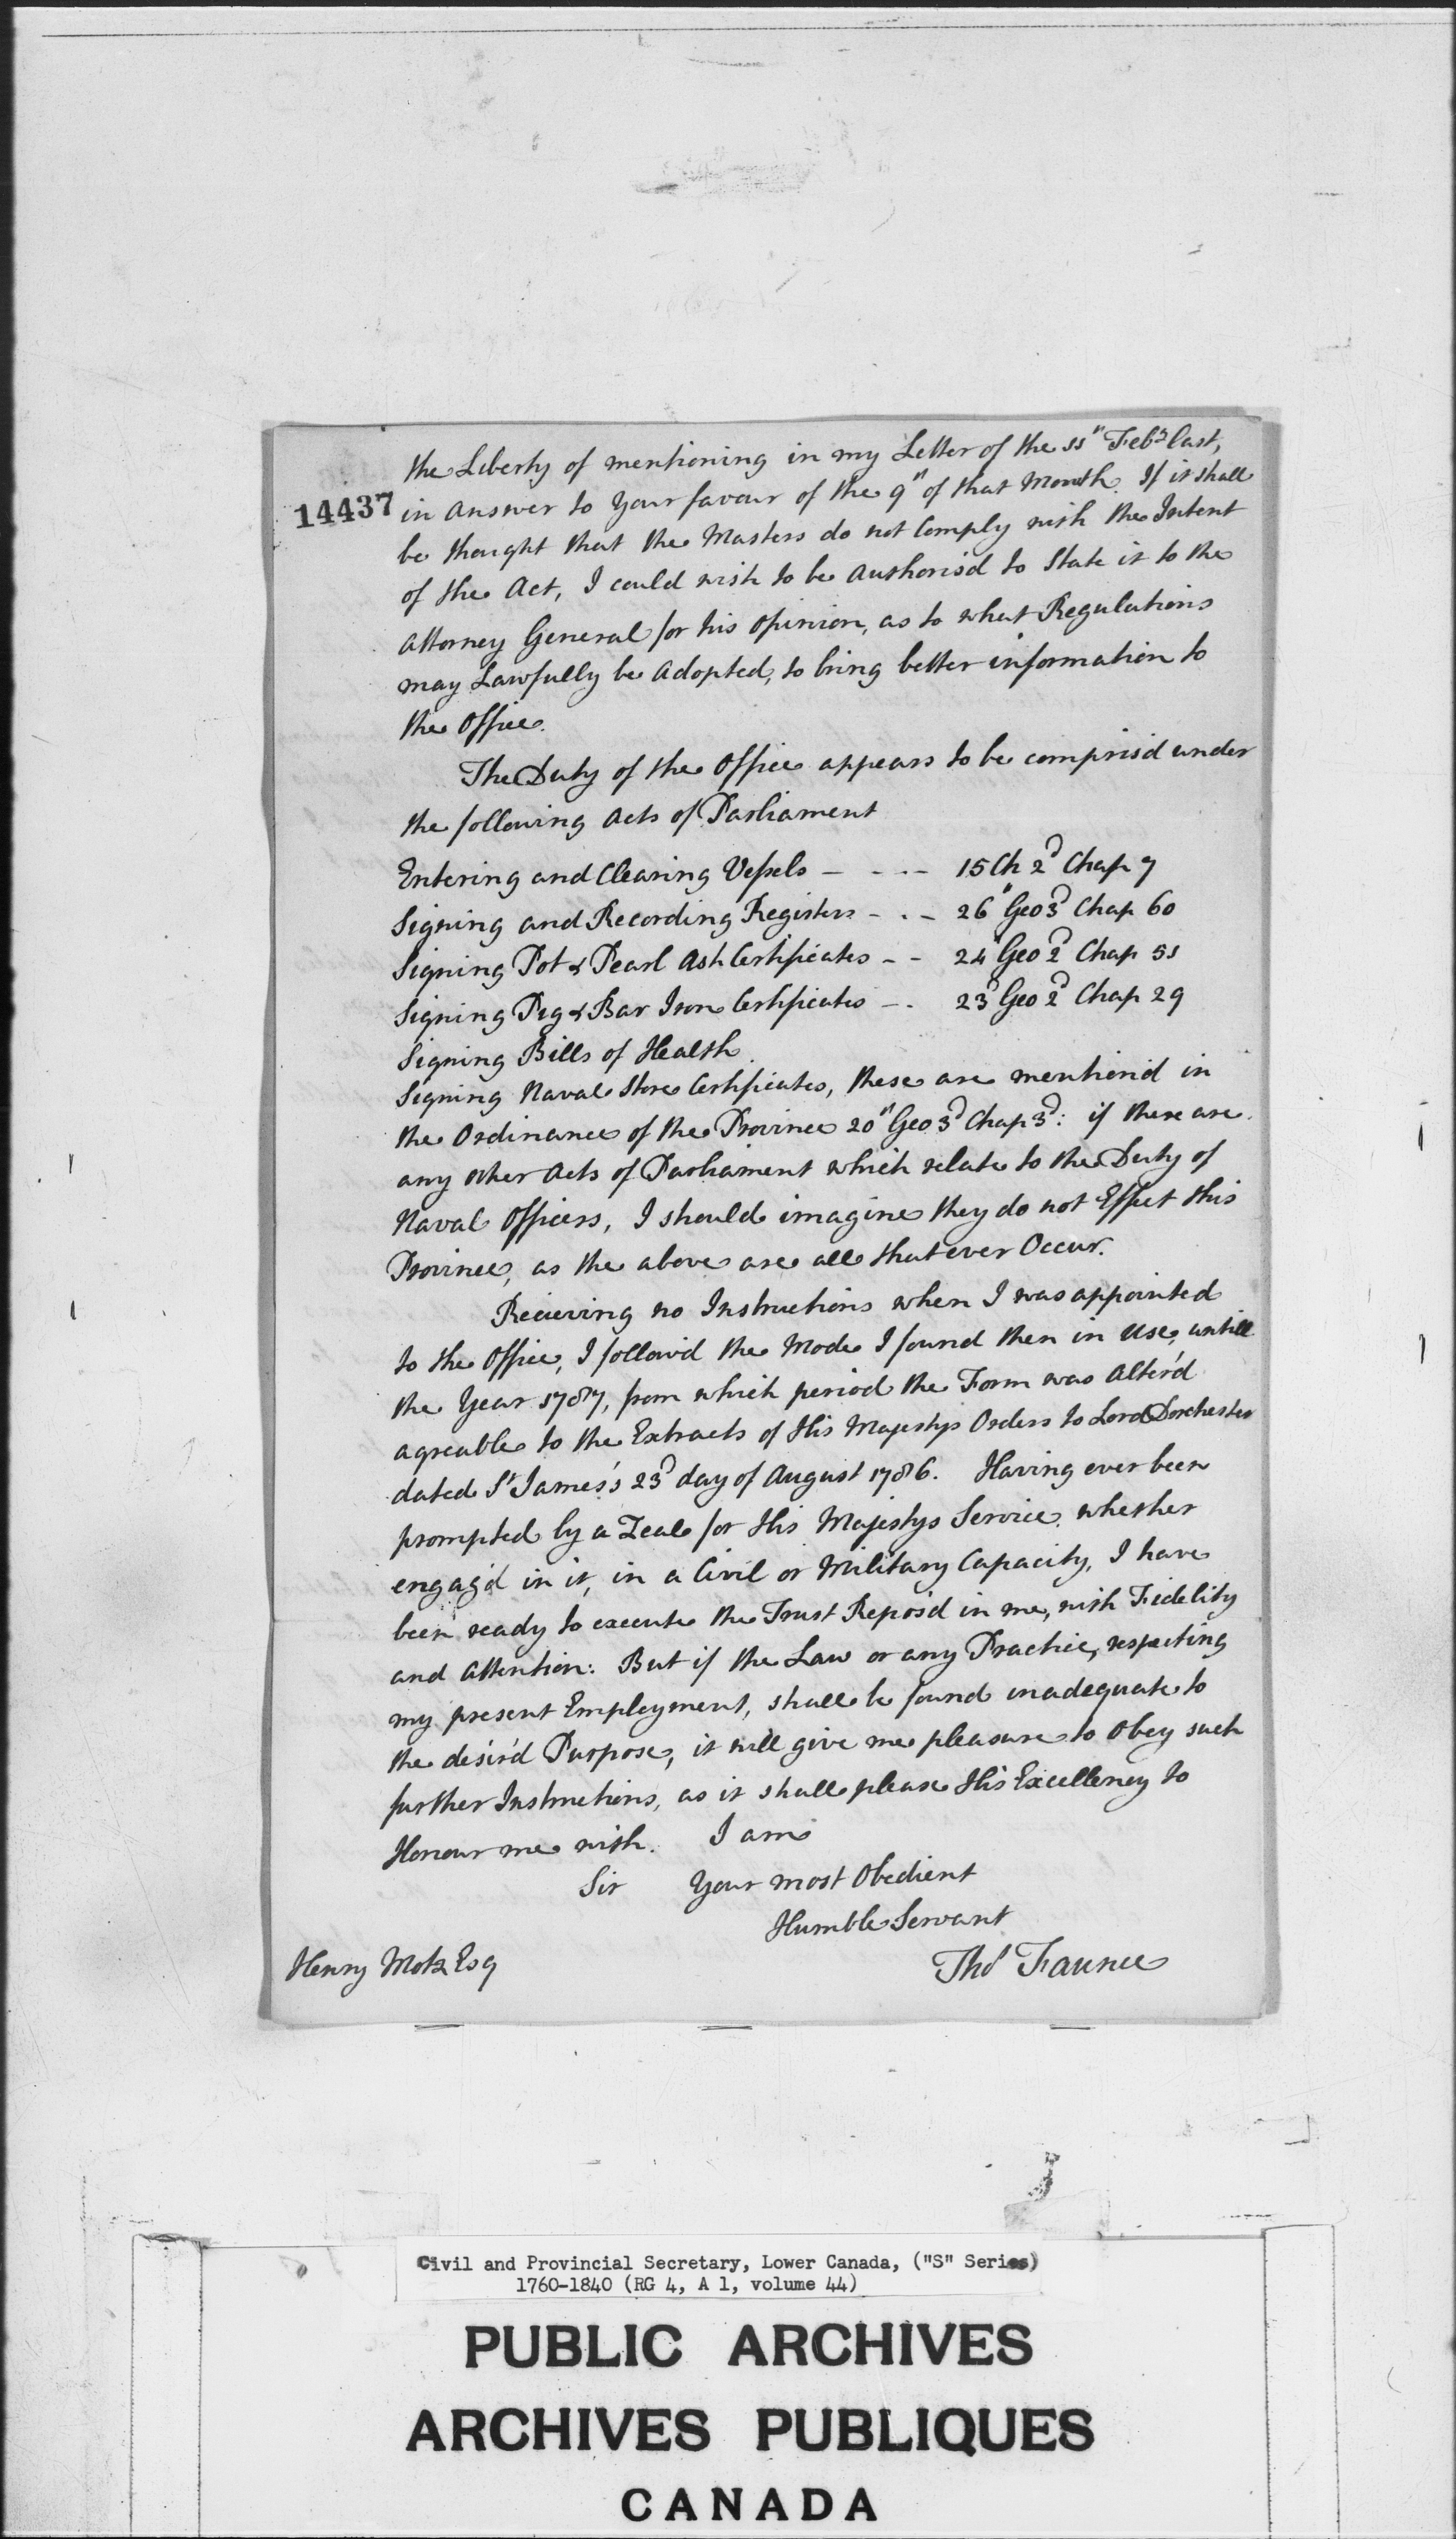 the Liberty of mentioning in my Letter of the 11" Feby last,
14437
in answer to your favour of the 9" of that Month. If it shall
be thought that the Masters do not Comply with the Intent
of the Act, I could wish to be Authoris'd to State it to the
Attorney General for his opinion, as to what Regulations
may Lawfully be Adopted, to bring better information to
the Office.
The Duty of the Office appears to be compris'd under
the following Acts of Parliament
Entering and Clearing Vessels - - - - 15 Ch 2d Chap 7
Signing and Recording Registers - - - 26" Geo 3d Chap 60
Signing Pot & Pearl Ash Certificates - - 24" Geo 2d Chap 51
Signing Pig & Bar Iron Certificates - - 23d Geo 2d Chap 29
Signing Bills of Health.
Signing Naval Store Certificates, these are mention'd in
the Ordinance of the Province 20" Geo 3d Chap 3d: if there are
any other Acts of Parliament which relate to the Duty of
Naval Officers, I should imagine they do not Effect this
Province, as the above are all that ever Occur.
Recieving no Instructions when I was appointed
to the Office, I follow'd the Mode I found then in Use, untill
the Year 1787, from which period the Form was Alter'd
agreable to the Extracts of His Majestys Orders to Lord Dorchester
dated St James's 23d day of August 1786. Having ever been
prompted by a Zeal for His Majestys Service, whether
engag'd in it, in a Civil or Military Capacity, I have
been ready to execute the Trust Repos'd in me, with Fidelity
and Attention: But if the Law or any Practice, respecting
my present Employment, shall be found inadequate to
the desir'd Purpose, it will give me pleasure to Obey such
further Instructions, as it shall please His Excellency to
Honour me with. I am
Sir Your most Obedient
Humble Servant
Thos Faunce
Henry Motz Esq
Civil and Provincial Secretary, Lower Canada, ("S" Series)
1760-1840 (RG 4, A 1, volume 44)
PUBLIC ARCHIVES
ARCHIVES PUBLIQUES
CANADA